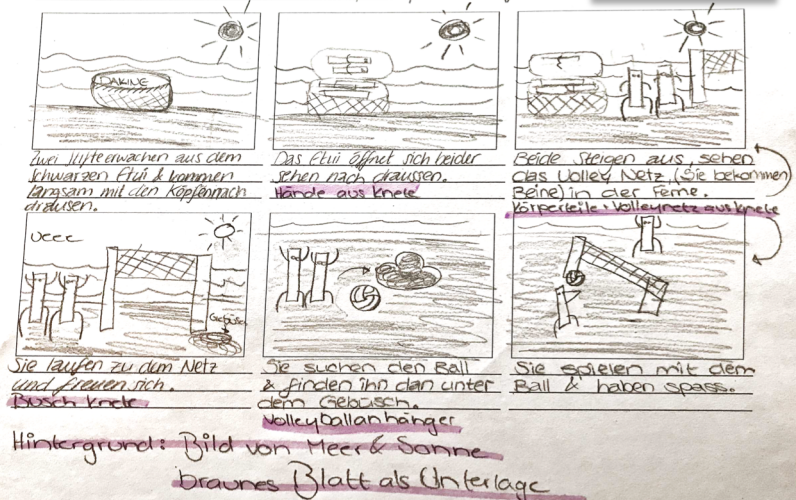 DAKINE
Zwei Stifte erwachen aus dem
Schwarzen Etui & kommen
langsam mit den Köpfen nach
draussen.
Das Etui öffnet sich beider
sehen nach draussen.
Hände aus Knete
Beide Steigen aus, sehen
das Volley Netz, (Sie bekommen
Beine) in der Ferne.
Körperteile + Volleynetz aus Knete
Ueee
Gebüsch
Sie laufen zu dem Netz
und freuen sich.
Busch Knete
Sie suchen den Ball
& finden ihn dan unter
dem Gebüsch.
Volleyballanhänger
Sie spielen mit dem
Ball & haben spass.
Hintergrund: Bild von Meer & Sonne
braunes Blatt als Unterlage